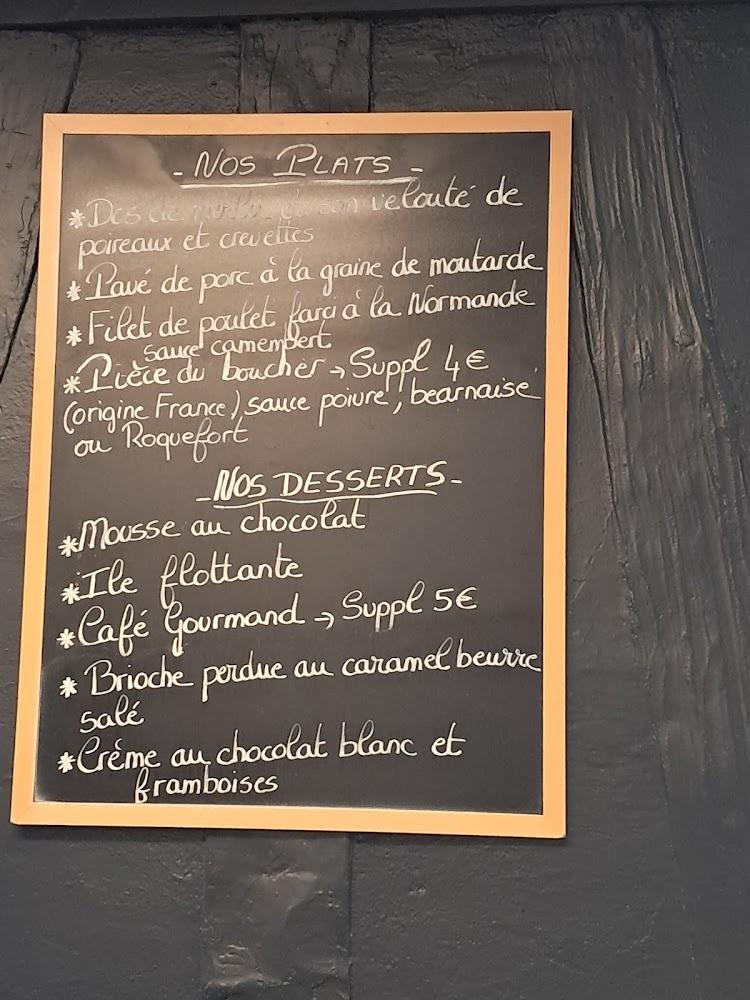 - NOS PLATS -
* Dos de et son velouté de
poireaux et crevettes
* Pavé de porc à la graine de moutarde
* Filet de poulet farci à la Normande
sauce camembert
* Pièce du boucher → Suppl 4€
(origine France) sauce poivre, bearnaise
ou Roquefort
- NOS DESSERTS -
* Mousse au chocolat
* Ile flottante
* Café Gourmand → Suppl 5€
* Brioche perdue au caramel beurre
salé
* Crème au chocolat blanc et
framboises